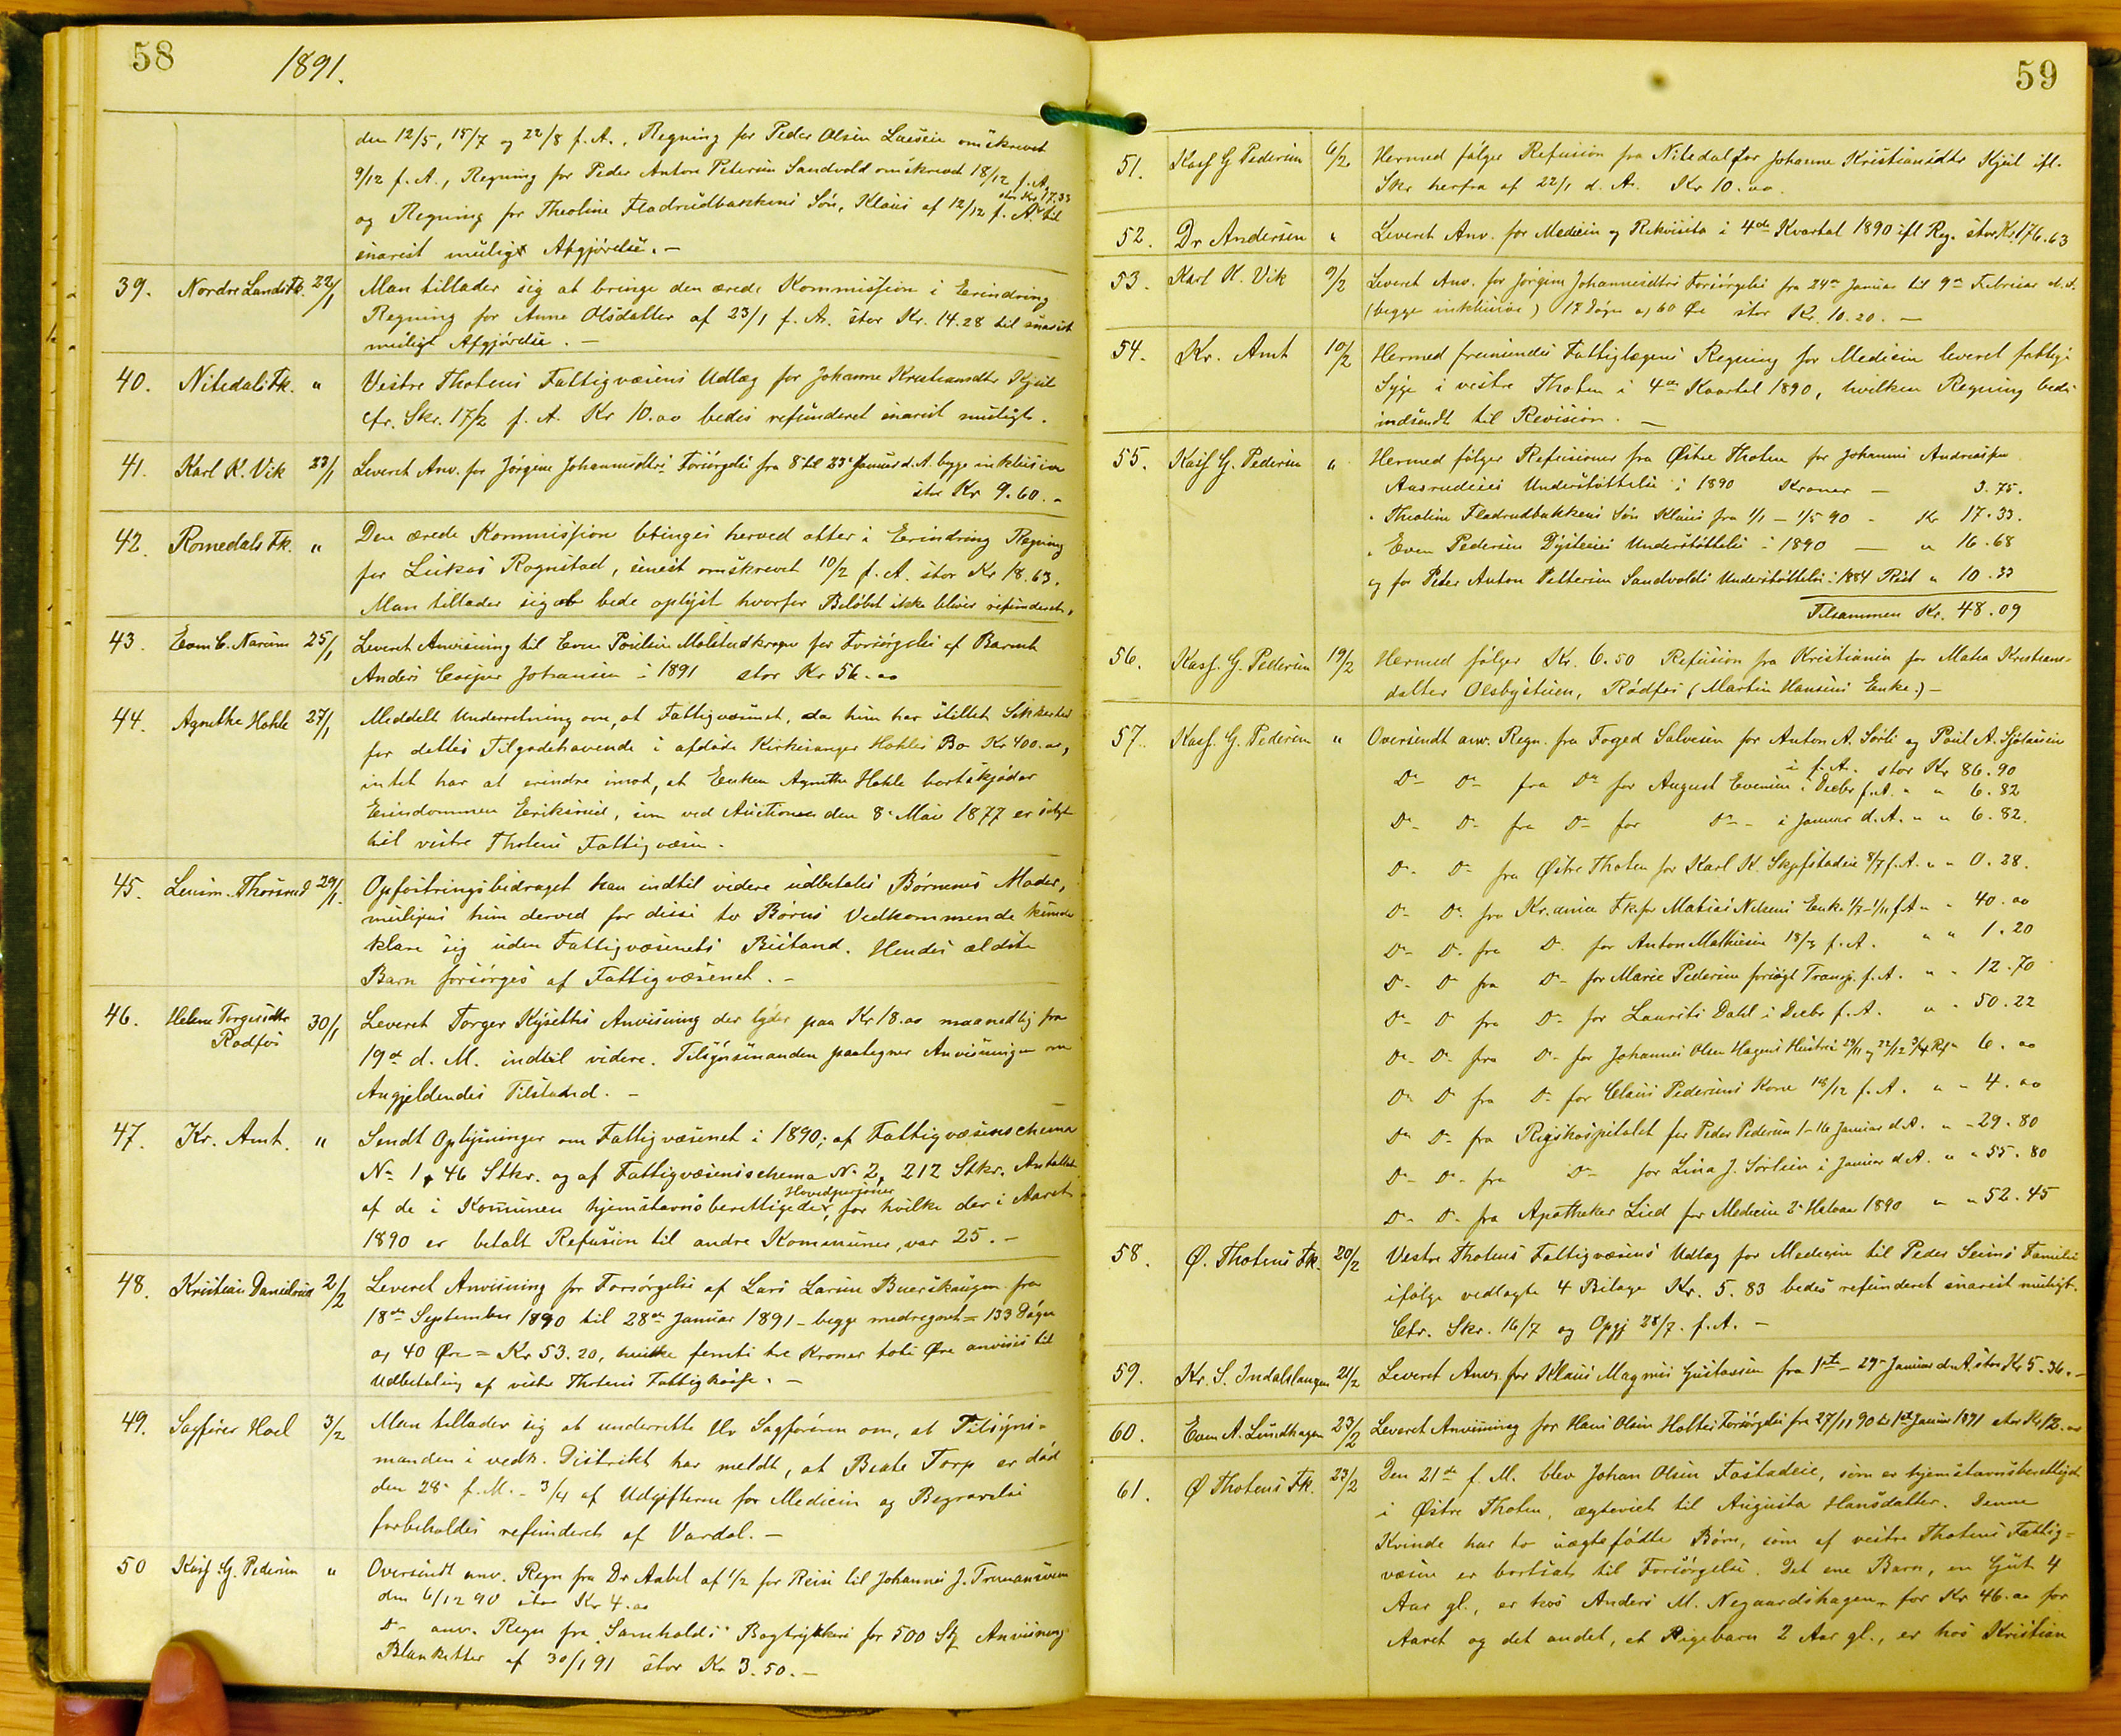 58
1891.
den 12/5, 15/7 og 22/8 f. A., Regning for Peder Olsen omskrevet
9/12 f. A., Regning for Peder Anton Petersen Sandvold omskrevet 18/12 f. A.
og Regning for Theoline Fladrudbakkens Søn, Klaus af 12/12 f. A. stor Kr. 17.33 til
snarest muligst Afgjørelse. —
39. Nordre Lands Fk. 22/1 Man tillader sig at bringe den ærede Kommission i Erindring
Regning for Anne Olsdatter af 23/1 f. A. stor Kr. 14.28 til snarest
muligt Afgjørelse. —
40. Nitedals Fk. " Vestre Thotens Fattigvæsens Udlæg for Johanne Kristiansdtr Kjul
cfr. Skr. 17/2 f. A. Kr 10.00 bedes refunderet snarest muligt.
41. Karl K. Vik 23/1 Leveret Anv. for Jørgine Johannesdtrs Forsørgelse fra 8 til 23 Januar d. A. begge inklusive
stor Kr 9.60. -
42. Romedals Fk. " Den ærede Kommission bringes herved atter i Erindring Regning
for Lukas Rognstad, senest omskrevet 10/2 f. A. stor Kr 18.63.
Man tillader sig at bede oplyst hvorfor Beløbet ikke bliver refunderet.
43. Even C. Narum 25/1 Leveret Anvisning til Even Poulsen for Forsørgelse af Barnet
Anders Casper Johansen i 1891 stor Kr 56.00
44. Agnethe Hohle 27/1 Meddelt Underretning om, at Fattigvæsenet, da hun har stillet Sikkerhed
for dettes Tilgodehavende i afdøde Kirkesanger Hohles Bo Kr 400.00,
intet har at erindre imod, at Enken Agnethe Hohle bortskjøder
Eiendommen Eriksrud, som ved Auctionen den 8 Mai 1877 er solgt
til vestre Thotens Fattigvæsen.
45. Lensm. Thorsrud 29/1. Opfostringsbidraget kan indtil videre udbetales Børnenes Moder,
muligens hun derved for disse to Børns Vedkommende kunde
klare sig uden Fattigvæsenets Bistand. Hendes ældste
Barn forsørges af Fattigvæsenet. —
46. Helene Torgersdtr
Rødfos 30/1 Leveret Torger Kyseths Anvisning der lyder paa Kr 18.00 maanedlig fra
19de d. M. indtil videre. Tilsynsmanden paategner Anvisningen om
Angjeldendes Tilstand. —
47. Kr. Amt. " Sendt Oplysninger om Fattigvæsenet i 1890; af Fattigvæsenschema
No 1, 46 Stkr. og af Fattigvæsensschema No 2, 212 Stkr. Antallet
Hovedpersoner
af de i Kommunen hjemstavnsberettigede, for hvilke der i Aaret
1890 er betalt Refusion til andre Kommuner, var 25. —
48. Kristian Danielsen 2/2 Leveret Anvisning for Forsørgelse af Lars Larsen fra
18de September 1890 til 28de Januar 1891 — begge medregnet = 133 Døgn
a, 40 Øre = Kr 53.20, hvilke femti tre Kroner tolv Øre anvises til
Udbetaling af vestre Thotens Fattigkasse. —
49. Sagfører Hoel 3/2 Man tillader sig at underrette Hr Sagføreren om, at Tilsyns-
manden i vedk. Distrikt har meldt, at Beate Torp er død
den 28 f. M. — 3/4 af Udgifterne for Medicin og Begravelse
forbeholdes refunderet af Vardal. —
50 Kass G. Pedersen " Oversendt anv. Regn fra Dr Aabel af 1/2 for Reise til Johannes J.
den 6/12 90 stor Kr 4.00
Do anv. Regn fra "Samholds" Bogtrykkeri for 500 Stk Anvisnings
Blanketter af 30/1 91 stor Kr 3.50. —
59
51. Kass G Pedersen 6/2 Hermed følger Refusion fra Nitedal for Johanne Kristiansdtr Kjul ifl.
Skr herfra af 22/1 d. A. Kr 10.00.
52. Dr Andersen " Leveret Anv. for Medicin og Rekvisita i 4de Kvartal 1890 ifl Reg. stor Kr. 176.63
53. Karl K. Vik 9/2 Leveret Anv. for Jørgine Johannesdtrs Forsørgelse fra 24de Januar til 9de Februar d. A.
(begge inklusive) 17 Døgn a, 60 Øre stor Kr. 10.20. —
54. Kr. Amt 10/2 Hermed fremsendes Fattiglægens Regning for Medicin leveret fattige
Syge i vestre Thoten i 4de Kvartal 1890, hvilken Regning bedes
indsendt til Revision. —
55. Kass G. Pedersen " Hermed følger Refusioner fra Østre Thoten for Johannes Andreassen
Aasrudeies Understøttelse i 1890 Kroner — 3.75.
" Theoline Fladrudbakkens Søn Klaus fra 1/1 — 1/5 90 - Kr 17.33.
" Even Pedersen Dysteeies Understøttelse i 1890 — " 16.68
og for Peder Anton Pettersen Sandvolds Understøttelse i 1884 Rest " 10.33
Tilsammen Kr. 48.09
56. Kass. G. Pedersen 19/2 Hermed følger Kr. 6.50 Refusion fra Kristiania for Matea Kristians-
datter Olsbystuen, Rødfos (Martin Hansens Enke.) —
57. Kass. G. Pedersen " Oversendt anv. Regn. fra Foged Salvesen for Anton A. Sørli og Paul A.
i f. A. stor Kr 86.90
Do Do fra Do for August Evensen i Decbr f. A. " " 6.82
Do Do fra Do for Do i Januar d. A. " " 6.82.
Do Do fra Østre Thoten for Karl K. 8/7 f. A. " " 0.28.
Do Do fra Kr.ania Fk for Matias Nilsens Enke 1/7-1/11 f A " " 40.00
Do Do fra Do for Anton Mathiesen 18/3 f. A. " " 1.20
Do Do fra Do for Marie Pedersen forsøgt Transp. f. A. " " 12.70
Do Do fra Do for Laurits Dahl i Decbr f. A. " " 50.22
Do Do fra Do for Johannes Olsen Hagens Hustru 29/11 og 22/12 " 6.00
Do Do fra Do for Claus Pedersens Kone 18/12 f. A. " " 4.00
Do Do fra Rigshospitalet for Peder Pedersen 1-16 Januar d. A. " " 29.80
Do Do fra Do for Lina J. Sørlien i Januar d A. " " 55.80
Do Do fra Apotheker Lied for Medicin 2 Halvaar 1890 " " 52.45
58. Ø. Thotens Fk. 20/2 Vestre Thotens Fattigvæsens Udlæg for Medicin til Peder Seims Familie
ifølge vedlagte 4 Bilage Kr. 5.83 bedes refunderet snarest muligt.
Cfr. Skr. 16/7 og Opgj 28/7. f. A. —
59. Kr. S. Indahlhaugen 21/2 Leveret Anv. for Klaus Magnus Gustavsen fra 1ste — 29 Januar d. A. stor Kr 5.36. —
60. Even A. Lundhagen 23/2 Leveret Anvisning for Hans Olsen Holtes Forsørgelse fra 27/11 90 til 1ste Januar 1891 stor Kr 12.00
61. Ø Thotens Fk. 23/2 Den 21de f. M. blev Johan Olsen Fostadeie, som er hjemstavnsberettiget
i Østre Thoten, ægteviet til Augusta Hansdatter. Denne
Kvinde har to uægtefødte Børn, som af vestre Thotens Fattig=
væsen er bortsat til Forsørgelse. Det ene Barn, en Gut 4
Aar gl., er hos Anders M. Negaardshagen for Kr 46.00 for
Aaret og det andet, et Pigebarn 2 Aar gl., er hos Kristian